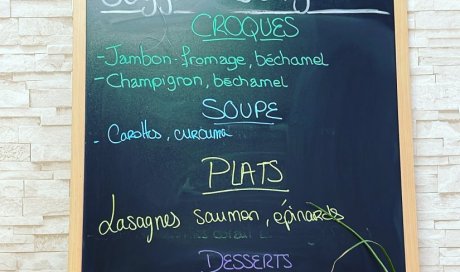 CROQUES
- Jambon-fromage, béchamel
- Champignon, béchamel
SOUPE
- Carottes, curcuma
PLATS
Lasagnes saumon, épinards
DESSERTS